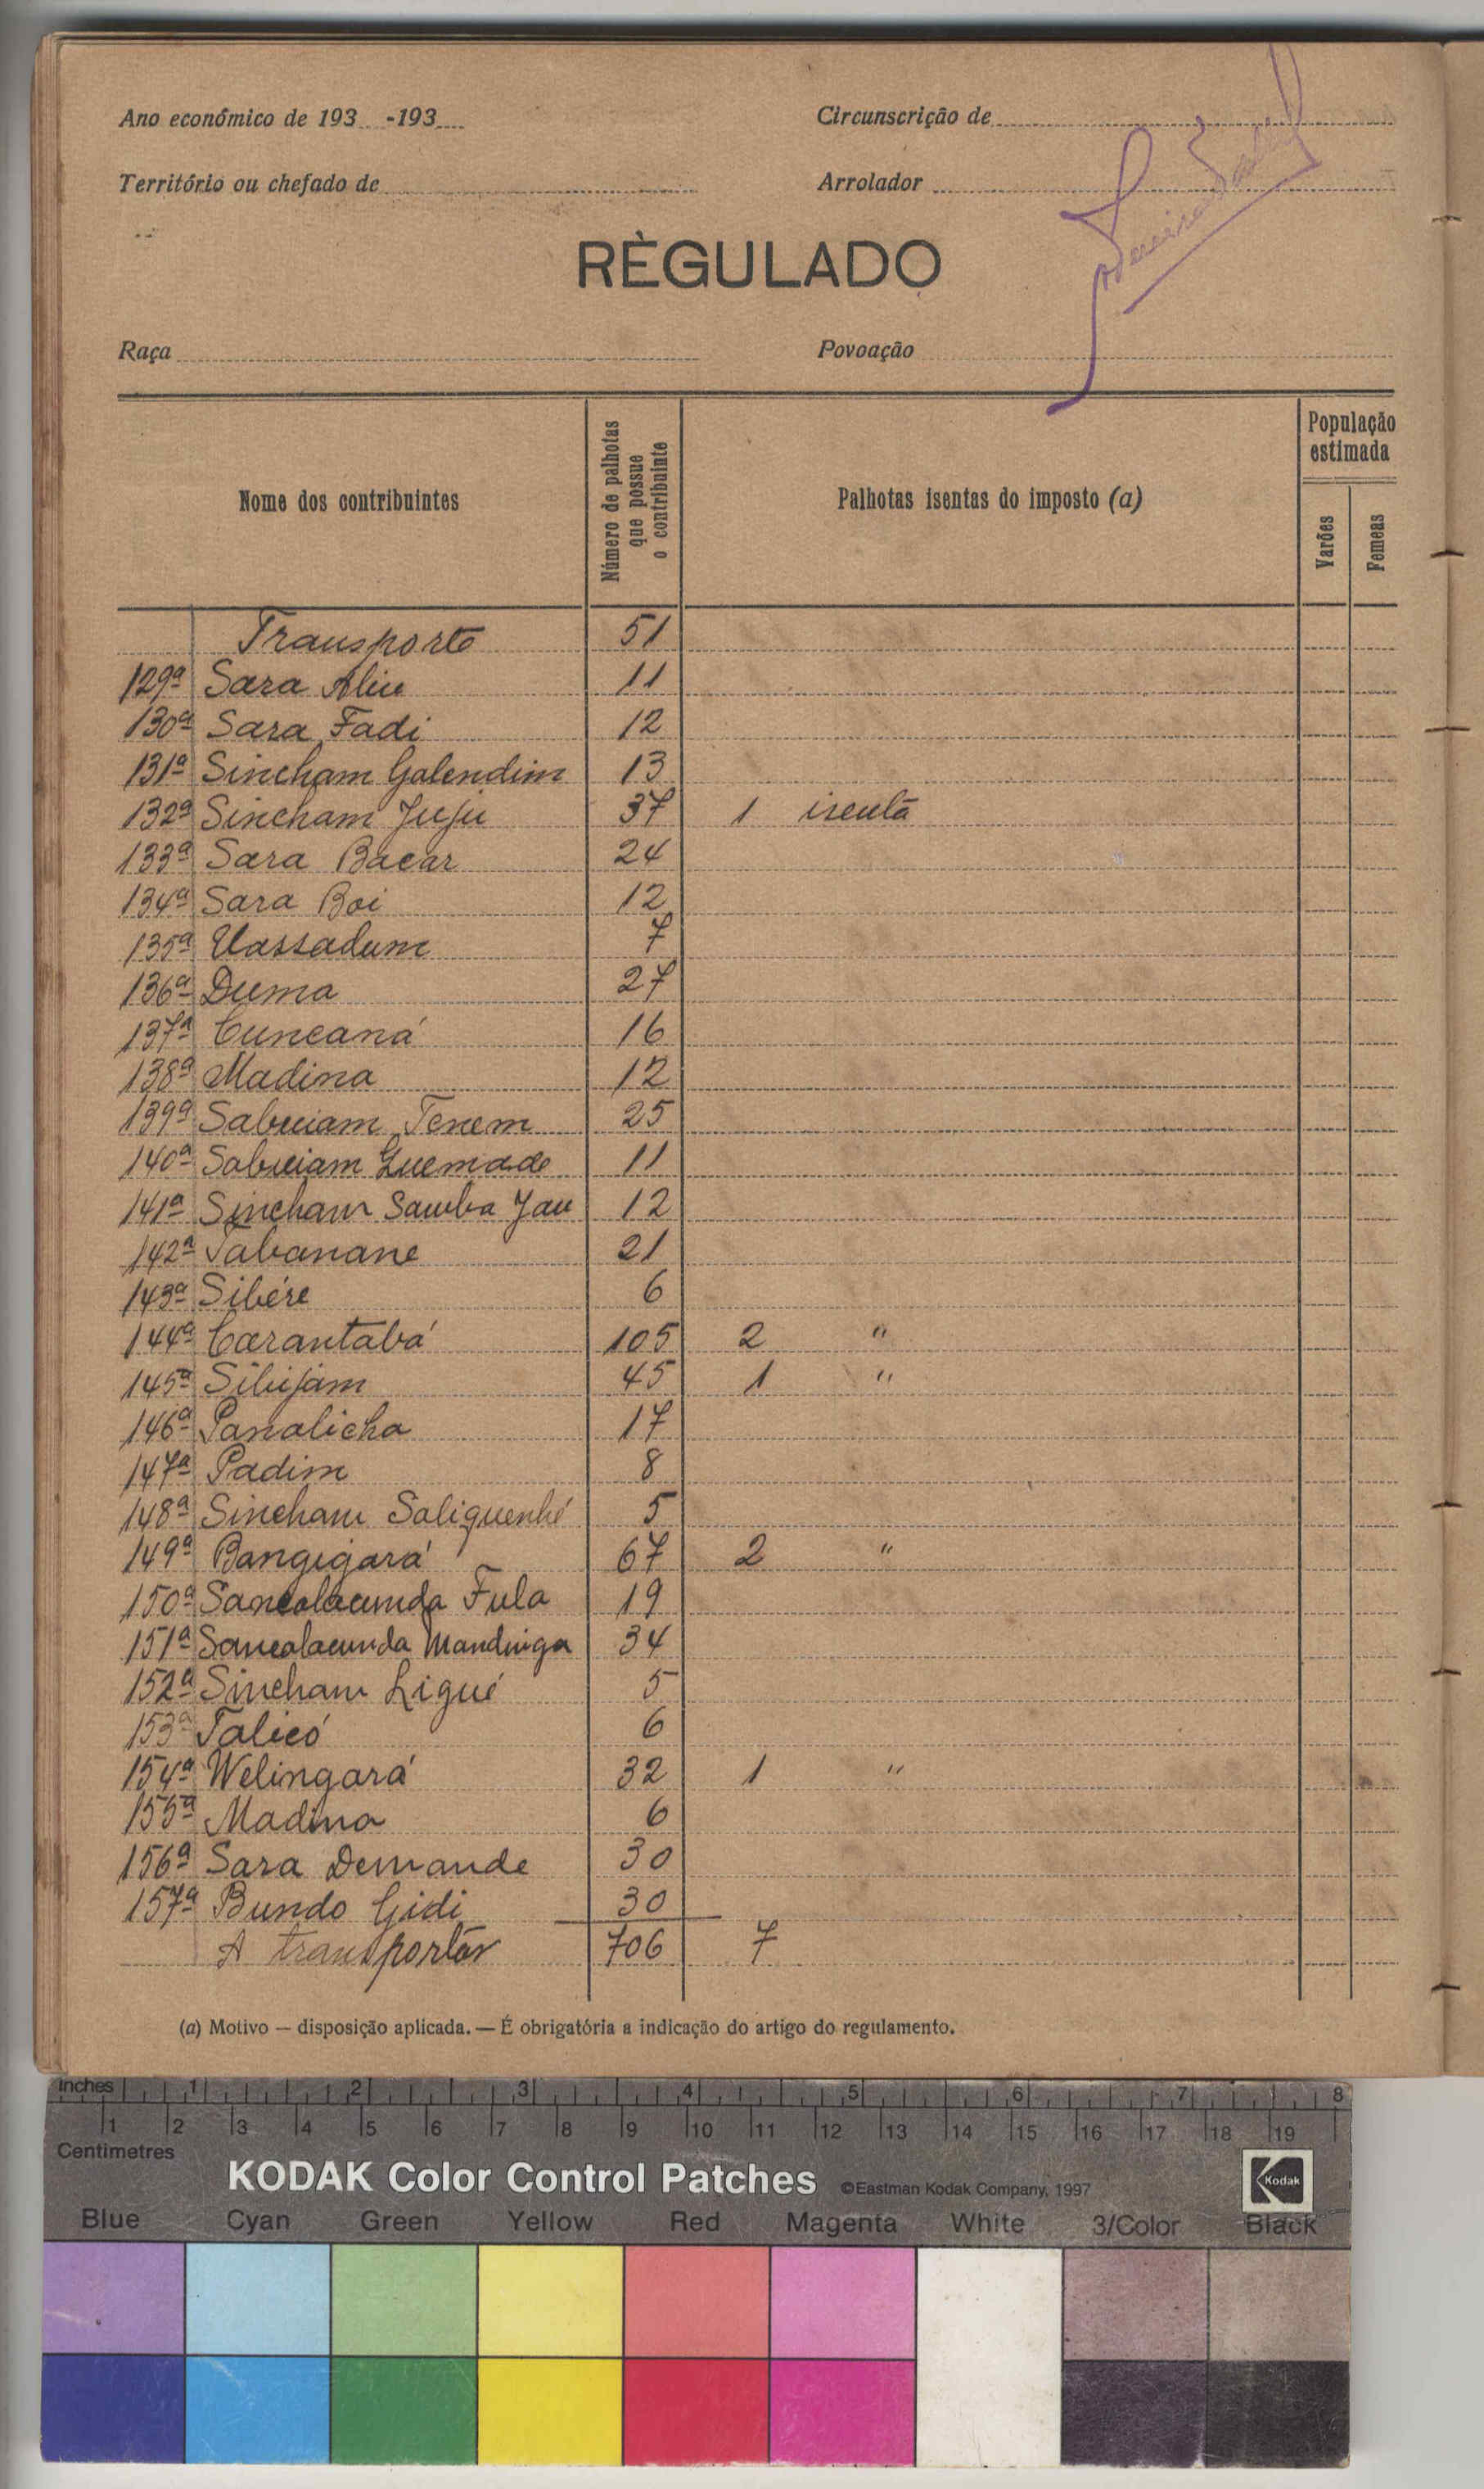 Ano económico de 193 -193
Circunscrição de
Território ou chefado de
Arrolador
RÈGULADO
Raça
Povoação
Nome dos contribuintes
Número de palhotas que possue o contribuinte
Palhotas isentas do imposto (a)
População estimada
Varões
Femeas
Transporte 51
129ª Sara Aliu 11
130ª Sara Fadi 12
131ª Sincham Galendim 13
132ª Sincham Juju 37 1 isenta
133ª Sara Bacar 24
134ª Sara Boi 12
135ª Uassadum 7
136ª Duma 27
137ª Cuncaná 16
138ª Madina 12
139ª Sabuiam Tenem 25
140ª Sabuiam Guemade 11
141ª Sincham Samba Jau 12
142ª Tabanane 21
143ª Sibére 6
144ª Carantabá 105 2 "
145ª Sibijam 45 1 "
146ª Panalicha 17
147ª Padim 8
148ª Sincham Saliquenhé 5
149ª Bangigará 67 2 "
150ª Sancolacunda Fula 19
151ª Sancolacunda Mandinga 34
152ª Sincham Ligué 5
153ª Talicó 6
154ª Welingará 32 1 "
155ª Madina 6
156ª Sara Demande 30
157ª Bundo Gidi 30
A transportar 706 7
(a) Motivo — disposição aplicada. — É obrigatória a indicação do artigo do regulamento.
Inches 1 2 3 4 5 6 7 8
1 2 3 4 5 6 7 8 9 10 11 12 13 14 15 16 17 18 19
Centimetres
KODAK Color Control Patches ©Eastman Kodak Company, 1997 Kodak
Blue Cyan Green Yellow Red Magenta White 3/Color Black